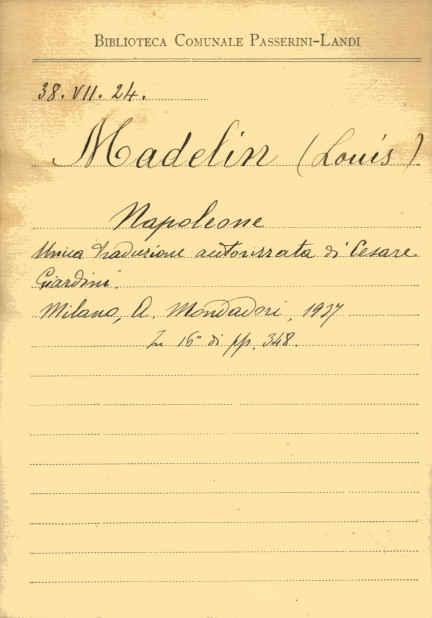 BIBLIOTECA COMUNALE PASSERINI-LANDI
38. VII. 24.
Madelin (Louis)
Napoleone
Unica traduzione autorizzata di Cesare
Giardini.
Milano, A. Mondadori, 1937
In 16° di pp. 348.